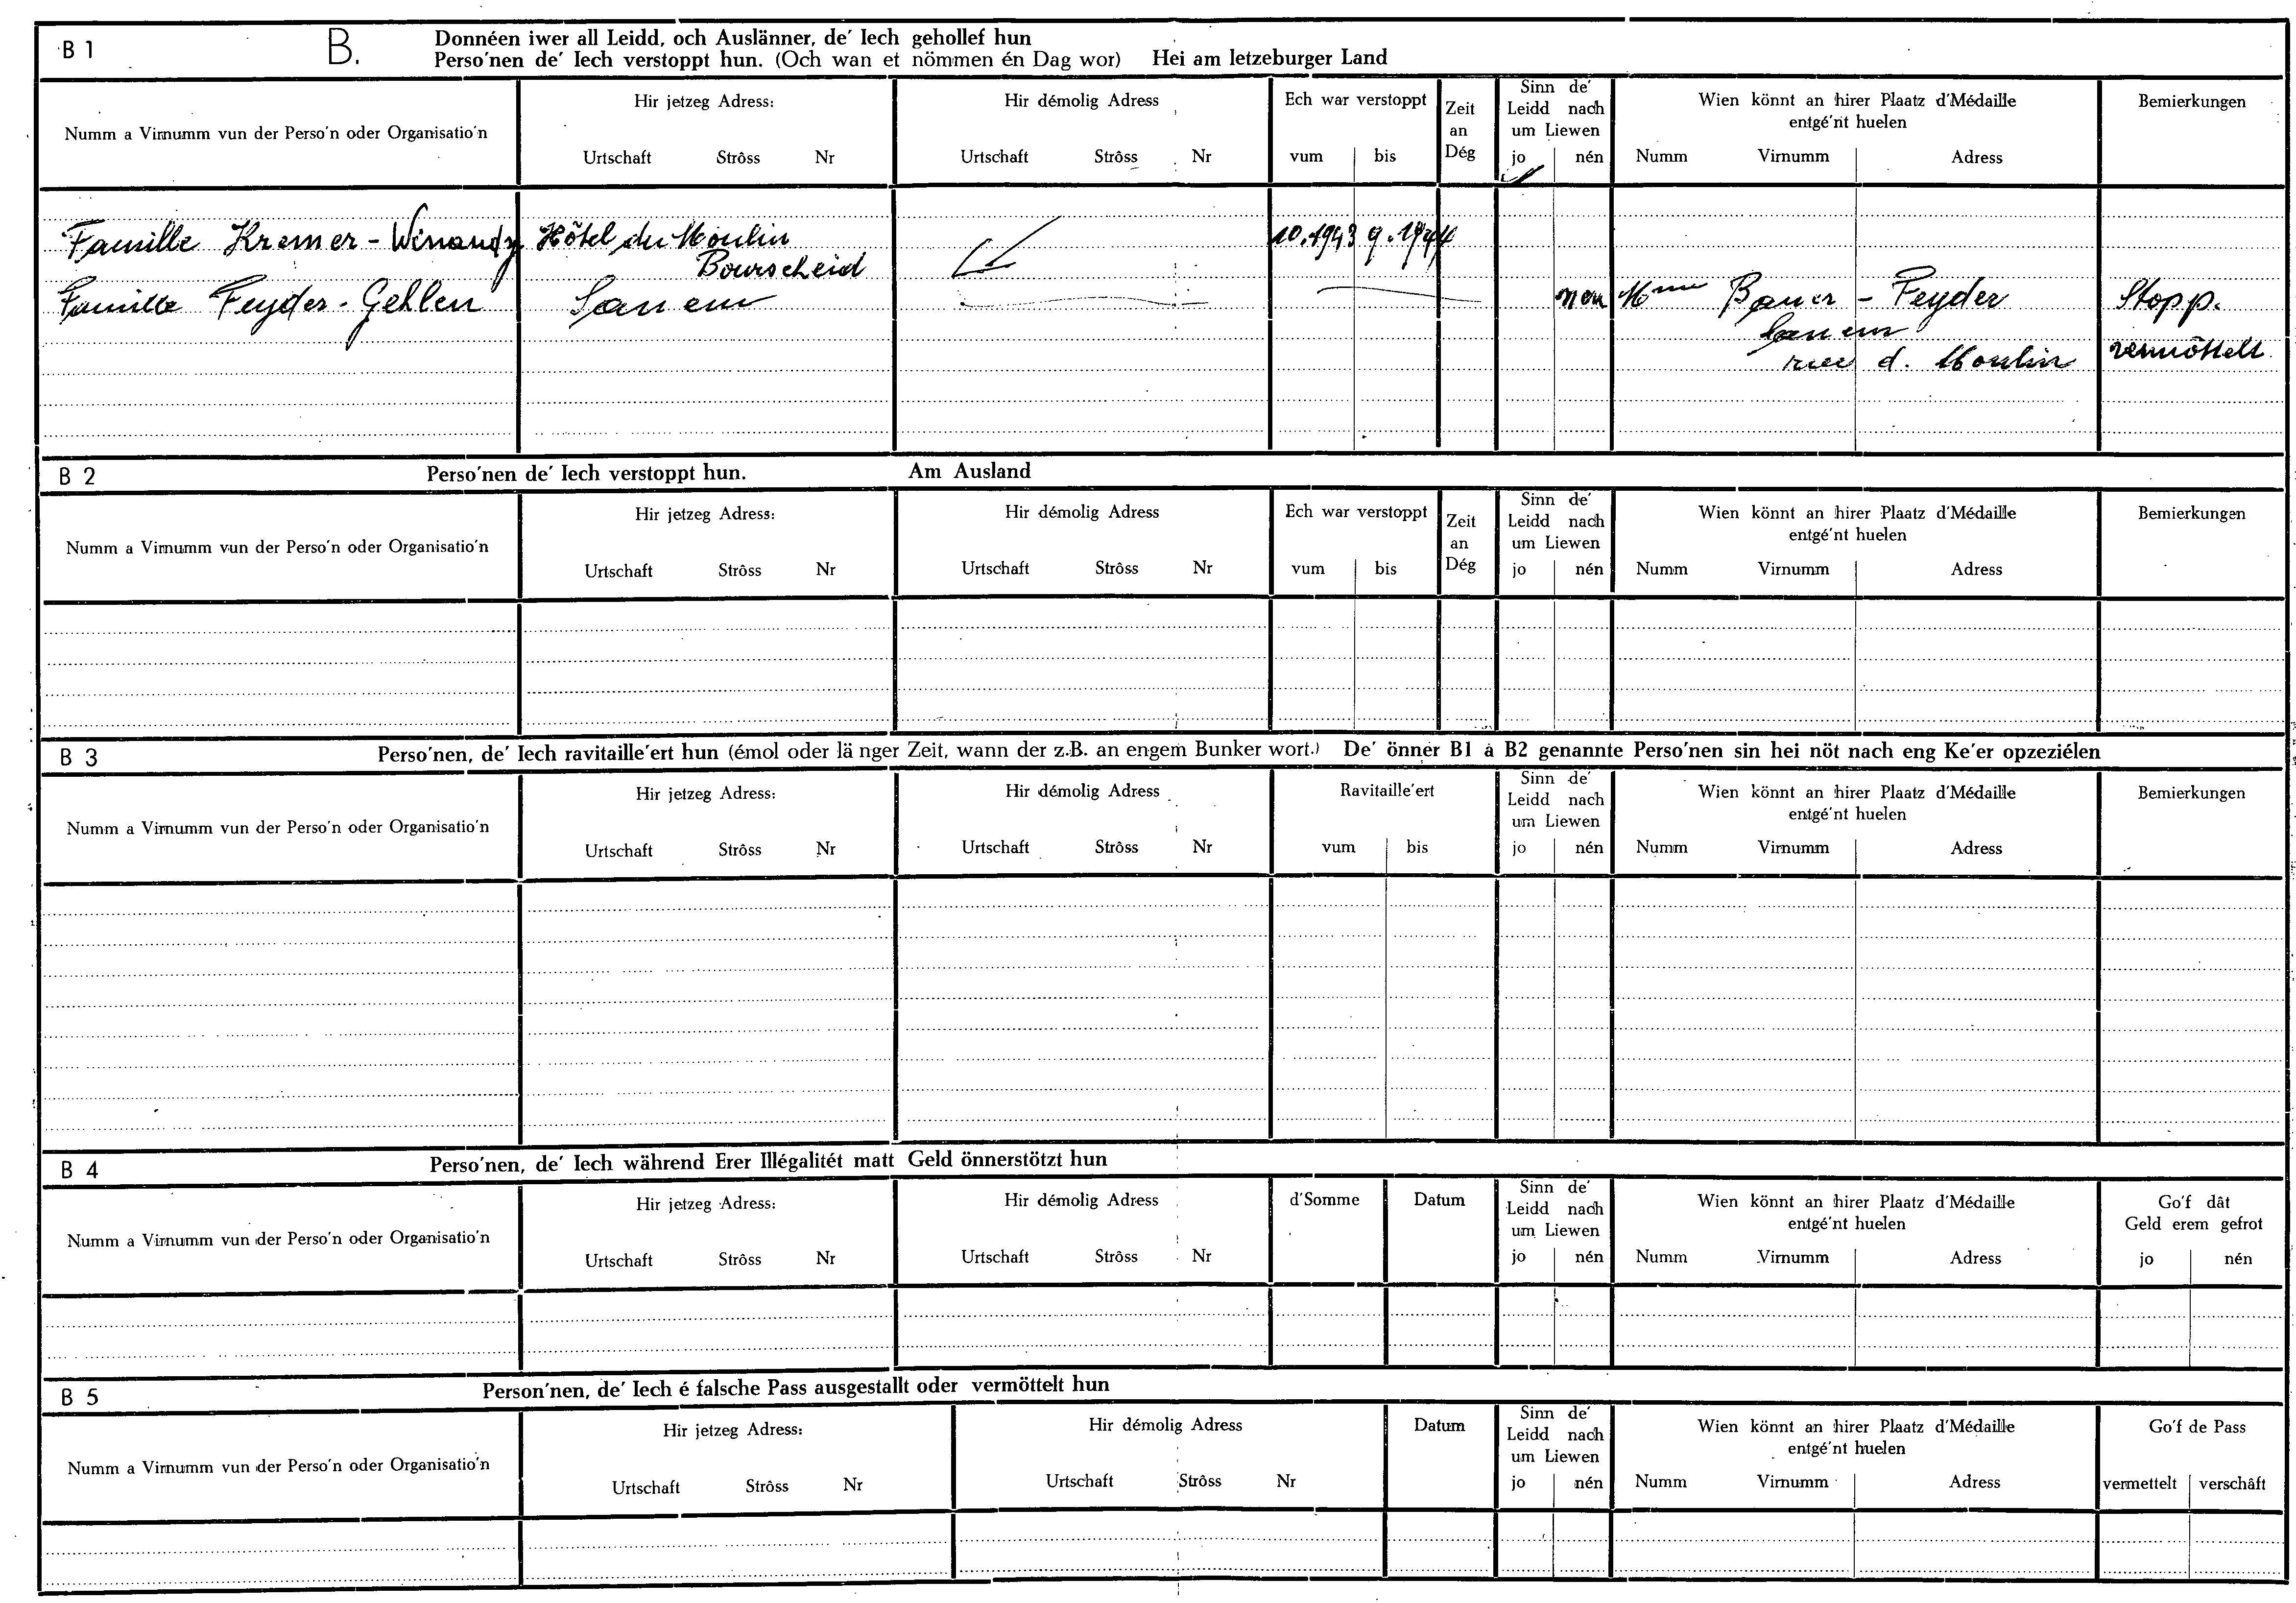 B 1 B. Donnéen iwer all Leidd, och Auslänner, de' Iech gehollef hun
Perso'nen de' Iech verstoppt hun. (Och wan et nömmen én Dag wor) Hei am letzeburger Land
Numm a Virnumm vun der Perso'n oder Organisatio'n
Hir jetzeg Adress:
Urtschaft Strôss Nr
Hir démolig Adress
Urtschaft Strôss Nr
Ech war verstoppt
vum bis
Zeit
an
Dég
Sinn de'
Leidd nach
um Liewen
jo nén
Wien könnt an hirer Plaatz d'Médaille
entgé'nt huelen
Numm Virnumm Adress
Bemierkungen
Famille Kremer - Winandy Hôtel du Moulin 10.1943 9.1944
Bourscheid
Famille Feyder - Gehlen Sanem non Mme Bauer - Feyder Stopp.
Sanem
rue d. Moulin vermöttelt
B 2 Perso'nen de' Iech verstoppt hun. Am Ausland
Numm a Virnumm vun der Perso'n oder Organisatio'n
Hir jetzeg Adress:
Urtschaft Strôss Nr
Hir démolig Adress
Urtschaft Strôss Nr
Ech war verstoppt
vum bis
Zeit
an
Dég
Sinn de'
Leidd nach
um Liewen
jo nén
Wien könnt an hirer Plaatz d'Médaille
entgé'nt huelen
Numm Virnumm Adress
Bemierkungen
B 3 Perso'nen, de' Iech ravitaille'ert hun (émol oder länger Zeit, wann der z.B. an engem Bunker wort.) De' önner B1 a B2 genannte Perso'nen sin hei nöt nach eng Ke'er opzeziélen
Numm a Virnumm vun der Perso'n oder Organisatio'n
Hir jetzeg Adress:
Urtschaft Strôss Nr
Hir démolig Adress
Urtschaft Strôss Nr
Ravitaille'ert
vum bis
Sinn de'
Leidd nach
um Liewen
jo nén
Wien könnt an hirer Plaatz d'Médaille
entgé'nt huelen
Numm Virnumm Adress
Bemierkungen
B 4 Perso'nen, de' Iech während Erer Illégalitét matt Geld önnerstötzt hun
Numm a Virnumm vun der Perso'n oder Organisatio'n
Hir jetzeg Adress:
Urtschaft Strôss Nr
Hir démolig Adress
Urtschaft Strôss Nr
d'Somme
Datum
Sinn de'
Leidd nach
um Liewen
jo nén
Wien könnt an hirer Plaatz d'Médaille
entgé'nt huelen
Numm Virnumm Adress
Go'f dât
Geld erem gefrot
jo nén
B 5 Person'nen, de' Iech é falsche Pass ausgestallt oder vermöttelt hun
Numm a Virnumm vun der Perso'n oder Organisatio'n
Hir jetzeg Adress:
Urtschaft Strôss Nr
Hir démolig Adress
Urtschaft Strôss Nr
Datum
Sinn de'
Leidd nach
um Liewen
jo nén
Wien könnt an hirer Plaatz d'Médaille
entgé'nt huelen
Numm Virnumm Adress
Go'f de Pass
vermettelt verschâft